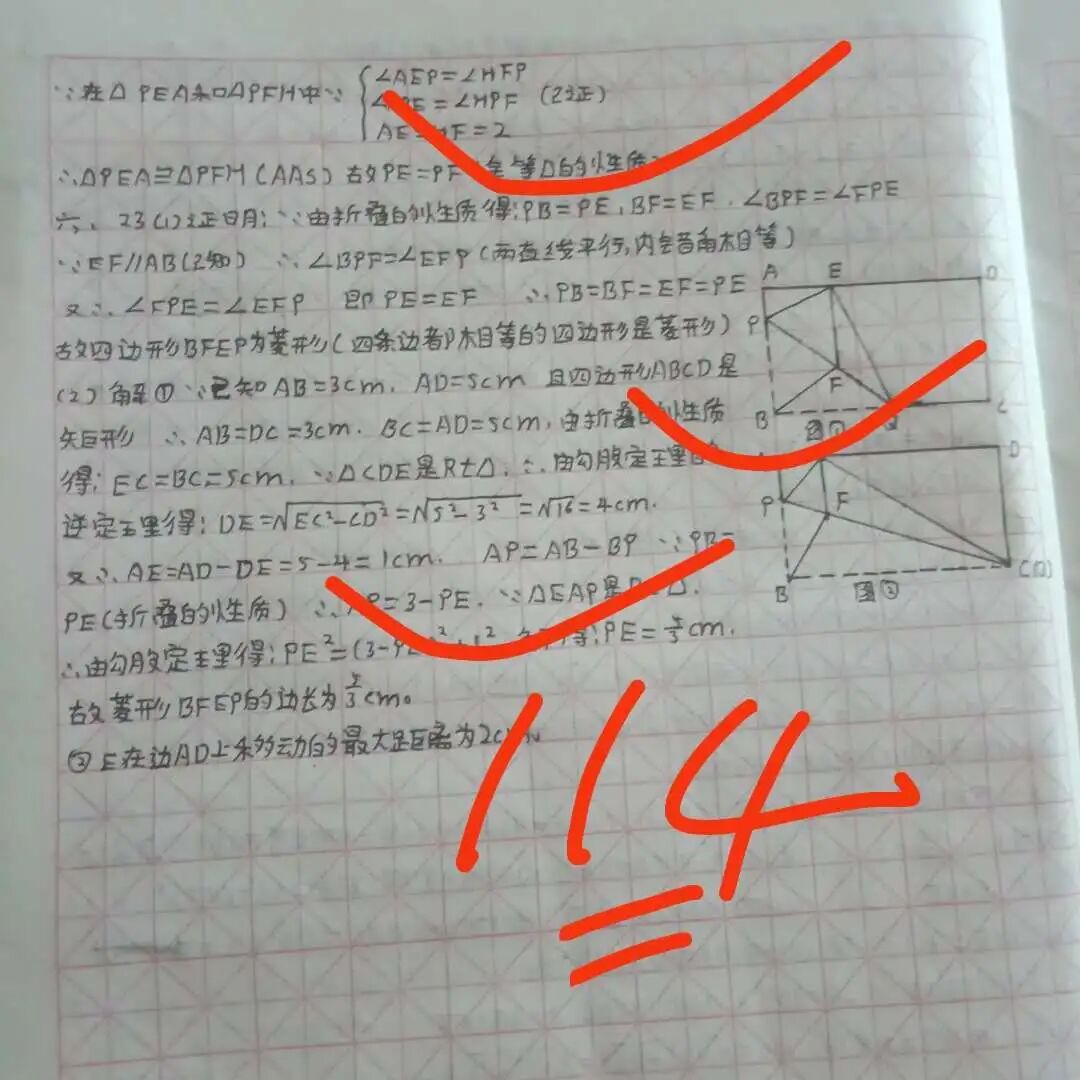 ∵在△PEA和△PFH中∵ {∠AEP=∠HFP
=∠HPF (已证)
AE=HF=2
∴△PEA≌△PFH(AAS) 故PE=PF 等△的性质
六、23(1)证明:∵由折叠的性质得:PB=PE,BF=EF,∠BPF=∠FPE
∵EF//AB(已知) ∴∠BPF=∠EFP(两直线平行,内错角相等)
又∴∠FPE=∠EFP 即PE=EF ∴PB=BF=EF=PE
故四边形BFEP为菱形(四条边都相等的四边形是菱形)
(2)解①∵已知AB=3cm,AD=5cm 且四边形ABCD是
矩形 ∴AB=DC=3cm. BC=AD=5cm,由折叠的性质
得:EC=BC=5cm,∵△CDE是Rt△,∴由勾股定理的
逆定理得:DE=√EC²-CD²=√5²-3²=√16=4cm.
又∴AE=AD-DE=5-4=1cm. AP=AB-BP ∵PB=
PE(折叠的性质) ∴AP=3-PE.∵△EAP是Rt△.
∴由勾股定理得:PE²=(3-PE)²+1² 得:PE=5/3cm.
故菱形BFEP的边长为5/3cm。
②E在边AD上移动的最大距离为2cm
A E D
P
F
B 图① Q C
D
P F
B 图② C(Q)
114